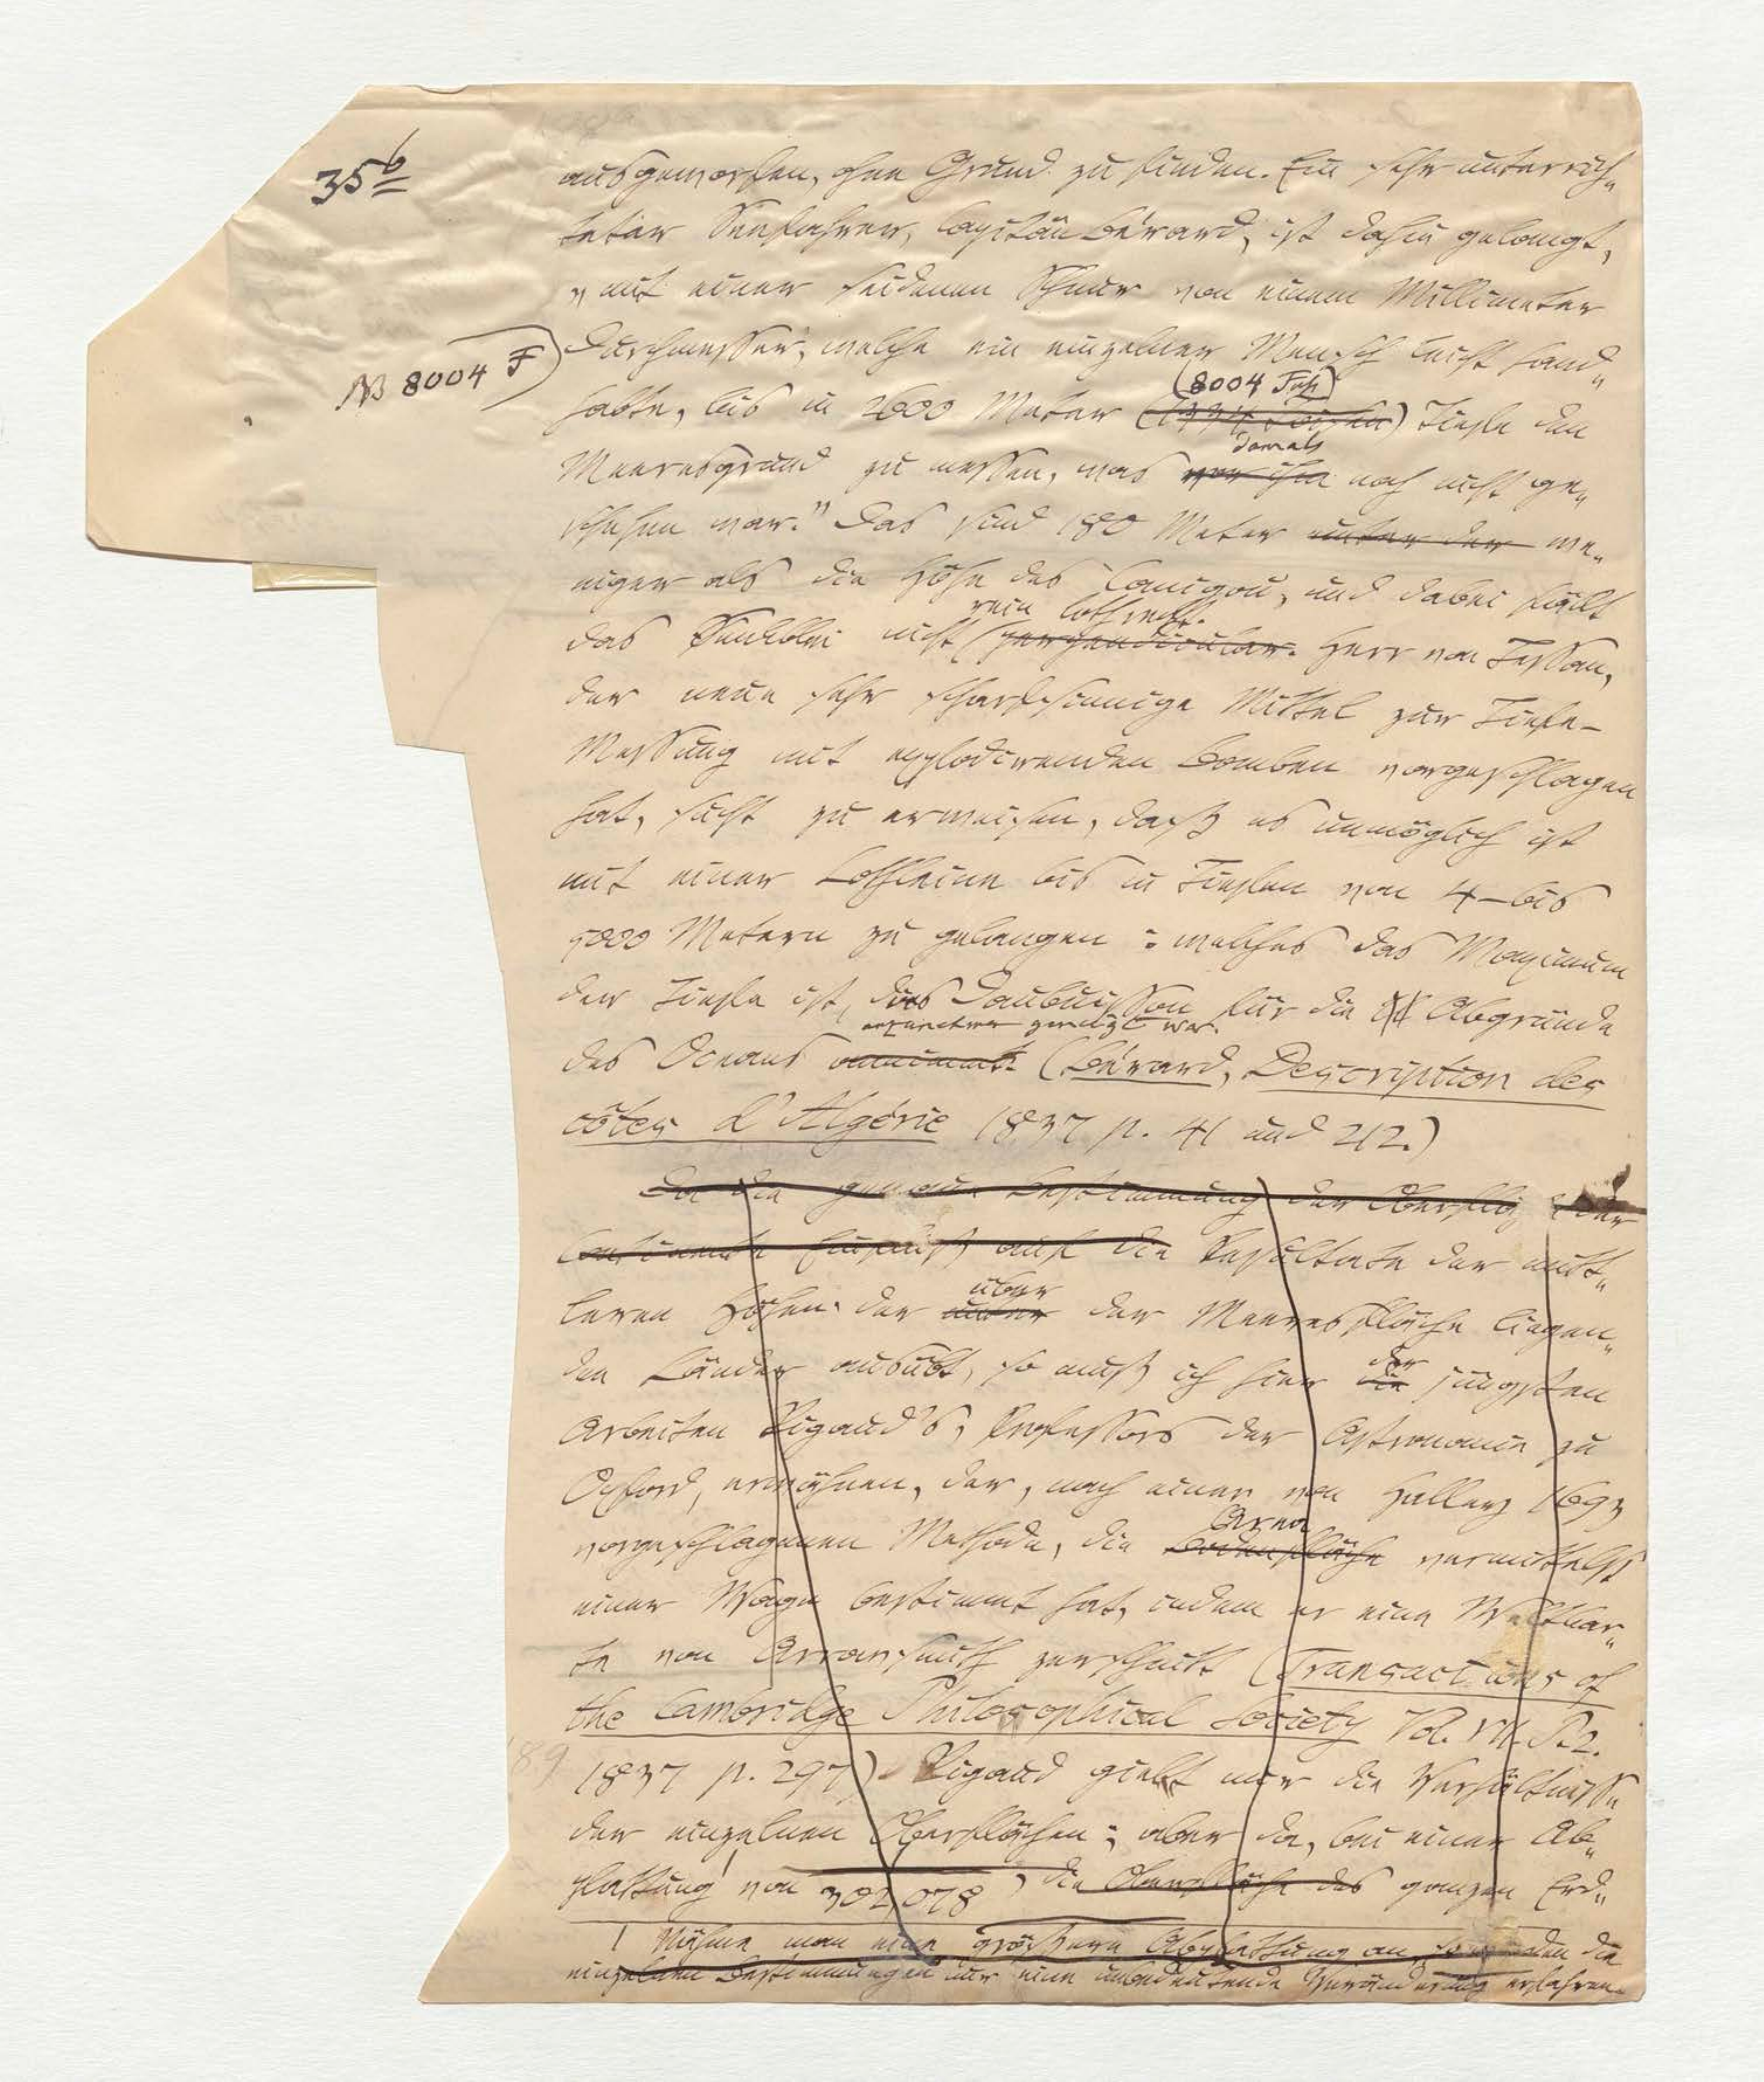 35b
ausgeworfen, ohne Grund zu finden. Ein sehr unterrich„
teter Seefahrer, Capitän Bérard, ist dahin gelangt,
„mit einer seidenen Schnur von einem Millimeter
Durchmesser, welche ein einzelner Mensch leicht hand„
NB 8004 F)
(8004 Fuß)
habte, bis in 2600 Meter (1334 Toisen) Tiefe den
damals
Meeresgrund zu messen, was vor ihm noch nicht ge„
schehen war." Das sind 180 Meter unter der we„
niger als die Höhe des Canigou, und dabei fällt
rein lothrecht.
das Senkblei nicht (perpendicular. Herr von Tessan,
der neue sehr scharfsinnige Mittel zur Tiefe-
Messung mit explodirenden Bomben vorgeschlagen
hat, sucht zu erweisen, daß es unmöglich ist
mit einer Lothleine bis in Tiefen von 4–bis
5000 Metern zu gelangen: welches das Maximum
der Tiefe ist, das Daubuisson für die Abgründe
anzunehmen geneigt war.
des Oceans annimmt. (Bérard, Description des
côtes d'Algérie 1837 p. 41 und 212.)
Da die genaue Bestimmung der Oberfläche der
Continente Einfluß auf die Resultate der mitt„
über
leren Höhen der unter der Meeresfläche liegen„
der
den Länder ausübt, so muß ich hier die jüngsten
Arbeiten Rigaud's, Professors der Astronomie zu
Oxford, erwähnen, der, nach einer von Halley 1693
Area
vorgeschlagenen Methode, die Bodenfläche vermittelst
einer Wage bestimmt hat, indem er eine Weltkar„
te von Arrowsmith zerschnitt (Transactions of
the Cambridge Philosophical Society Vol. VI. P.2.
89
1837 p. 297). Rigaud giebt nur die Verhältnisse
der einzelnen Oberflächen; aber da, bei einer Ab„
plattung¹ von 1/302,078, die Oberfläche des ganzen Erd„
1 Nähme man eine größere Abplattung an, so würden die
einzelnen Bestimmungen nur eine unbedeutende Veränderung erfahren.